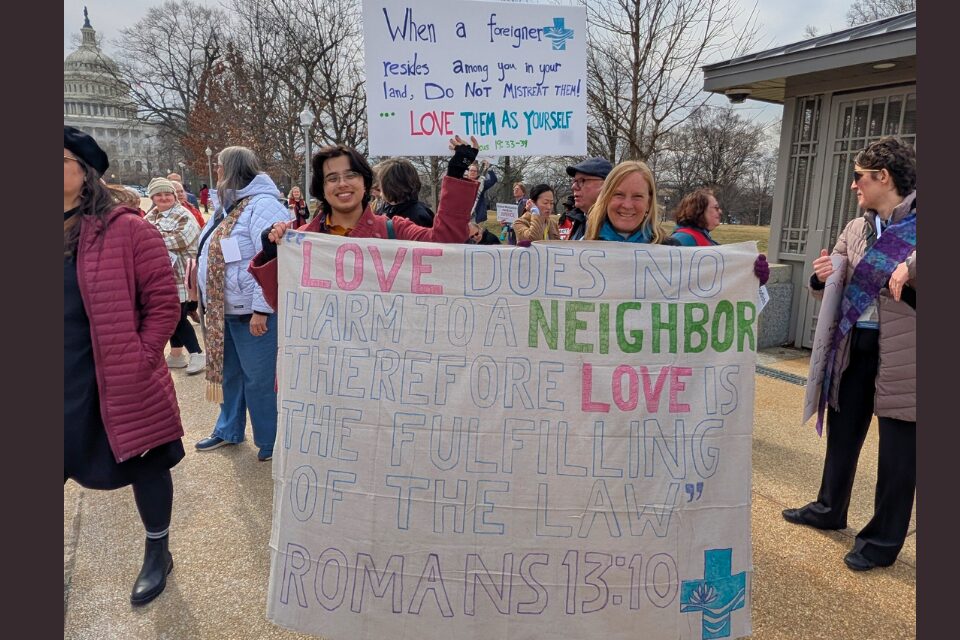 When a foreigner
resides among you in your
land, DO NOT MISTREAT THEM!
... LOVE THEM AS YOURSELF
19:33-34
"LOVE DOES NO
HARM TO A NEIGHBOR
THEREFORE LOVE IS
THE FULFILLING
OF THE LAW"
ROMANS 13:10